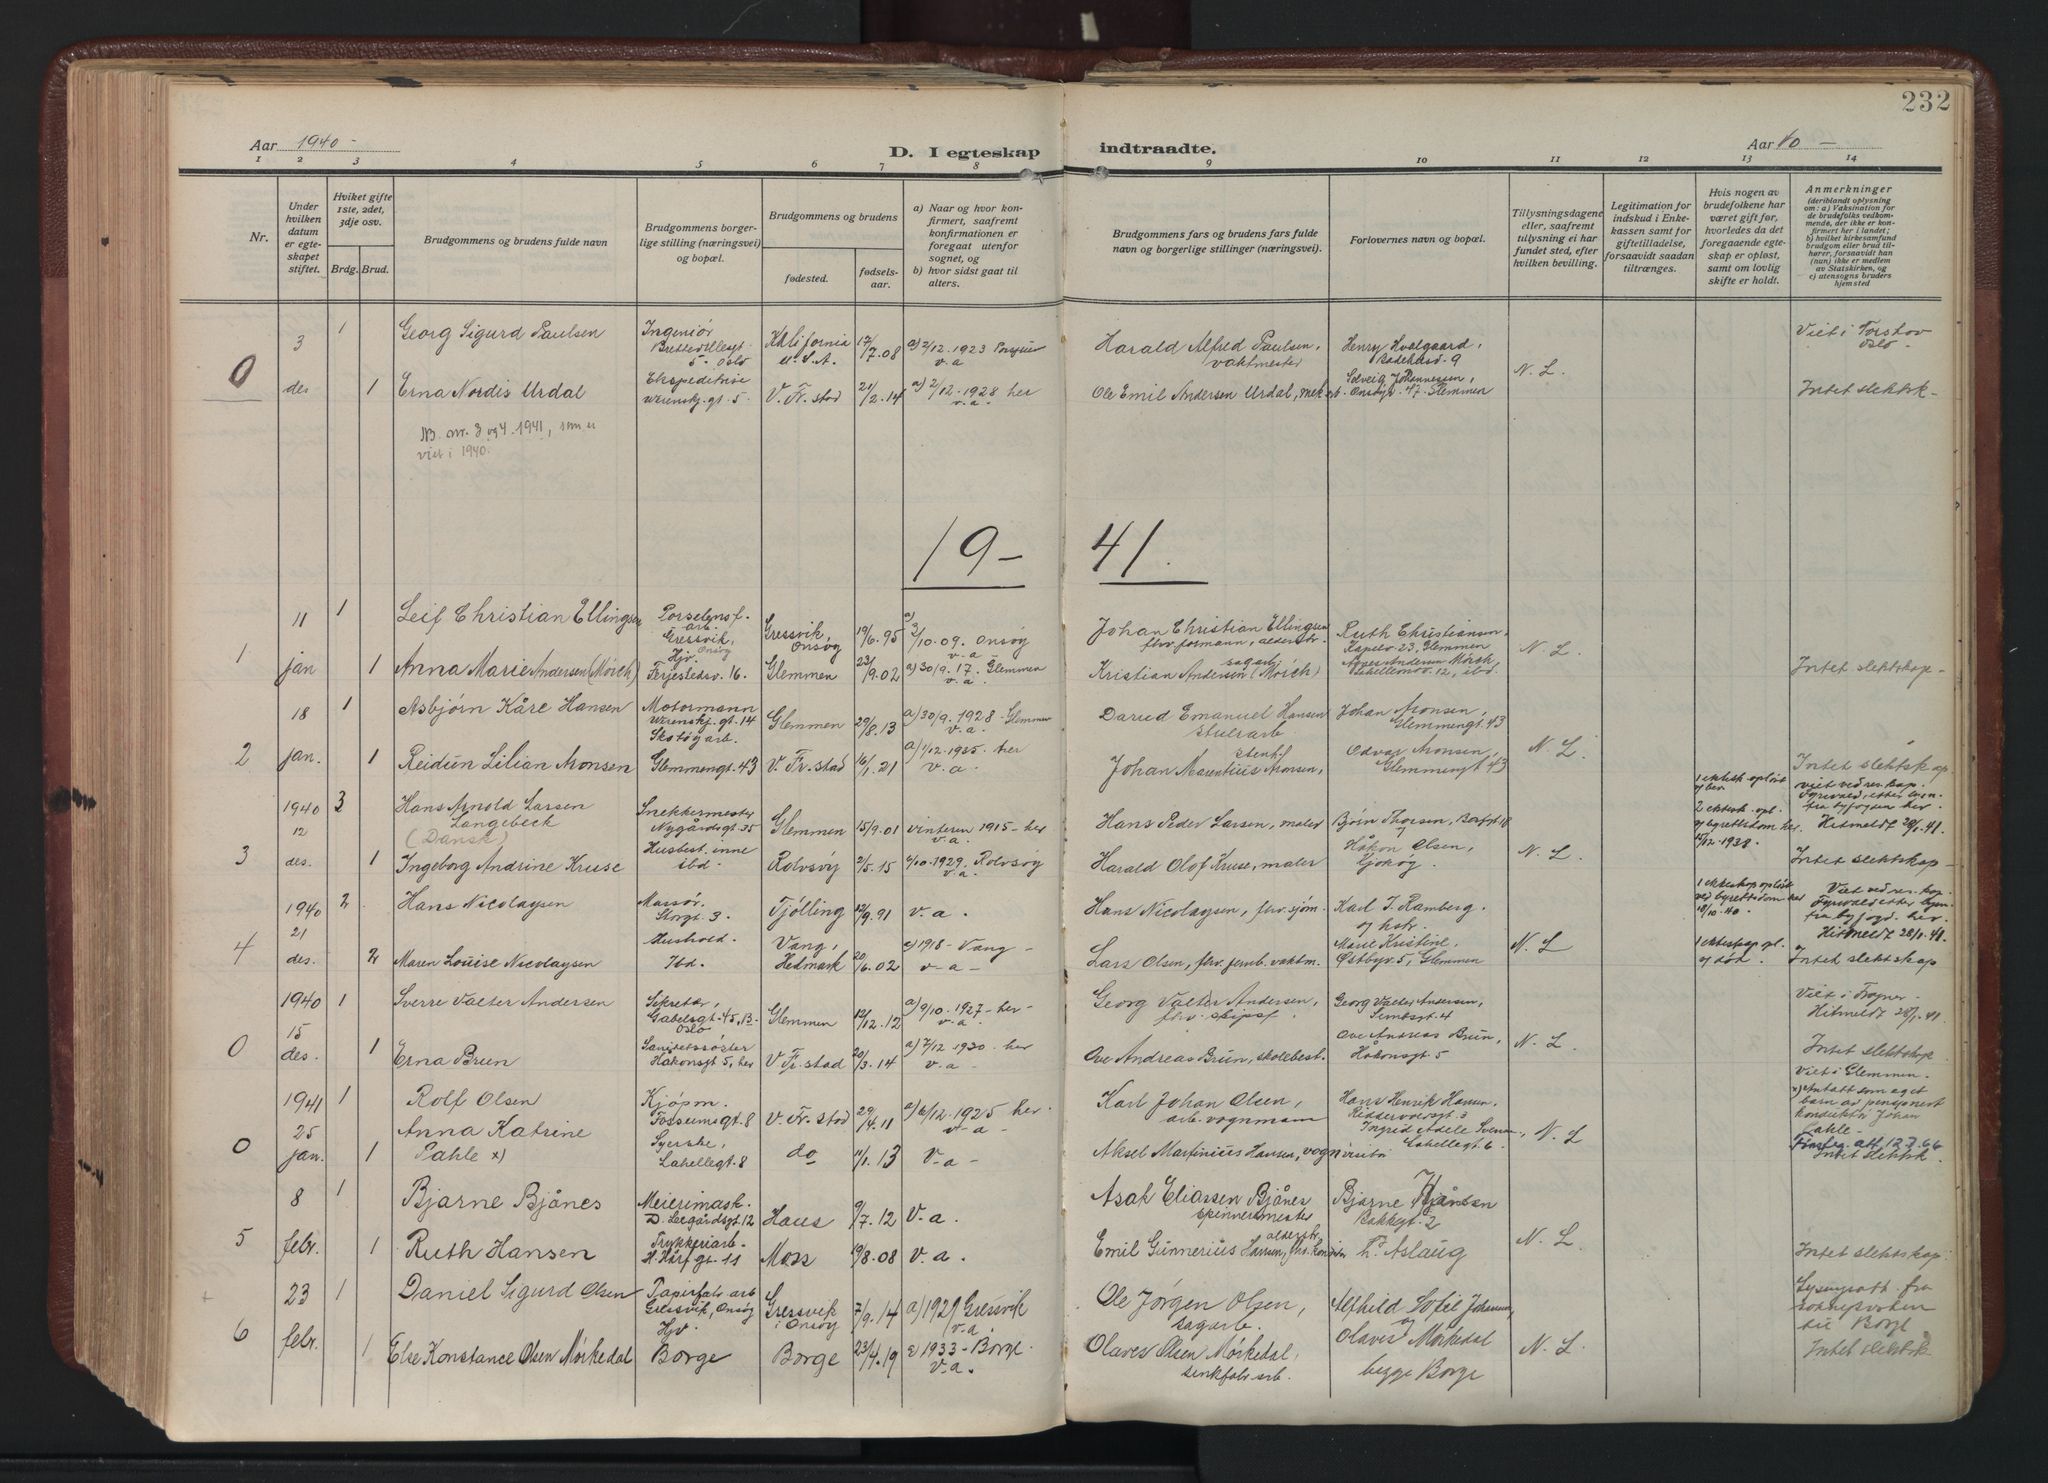 232
Aar 1940 –
D. I egteskap
indtraadte.
Aar 40 –
1 2 3 4 5 6 7 8
9 10 11 12 13 14
Nr.
Under hvilken datum er egteskapet stiftet.
Hviket gifte 1ste, 2det, 3dje osv.
Brdg. Brud.
Brudgommens og brudens fulde navn
Brudgommens borgerlige stilling (næringsvei) og bopæl.
Brudgommens og brudens
fødested.
fødselsaar.
a) Naar og hvor konfirmert, saafremt konfirmationen er foregaat utenfor sognet, og
b) hvor sidst gaat til alters.
Brudgommens fars og brudens fars fulde navn og borgerlige stillinger (næringsvei).
Forlovernes navn og bopæl.
Tillysningsdagene eller, saafremt tillysning ei har fundet sted, efter hvilken bevilling.
Legitimation for indskud i Enkekassen samt for giftetilladelse, forsaavidt saadan tiltrænges.
Hvis nogen av brudefolkene har været gift før, hvorledes da det foregaaende egteskap er opløst, samt om lovlig skifte er holdt.
Anmerkninger (deriblandt oplysning om: a) Vaksination for de brudefolks vedkommende, der ikke er konfirmert her i landet; b) hvilket kirkesamfund brudgom eller brud tilhører, forsaavidt han (nun) ikke er medlem av Statskirken, og c) utensogns bruders hjemsted
0 3 des 1 Georg Sigurd Paulsen Ingeniør Oslo Kalifornia U.S.A. 17/7.08 a) 2/12.1923 v.a Harald Alfred Paulsen, vaktmester Henry Hvalgaard, 9 N. L. Viet i Torshov Oslo –
1 Erna Nordis Urdal Ekspeditrise Werenskj. gt. 5 V. Fr. stad 21/2.14 a) 2/12.1928 her v.a. Ole Emil Andersen Urdal, mek. arb. Solveig Johannessen, Onsøyv. 47. Glemmen Intet slektsk –
NB. nr. 3 og 4. 1941, som er
viet i 1940.
19 – 41.
1 11 jan 1 Leif Christian Ellingsen Porselensf. arb. Gressvik, Onsøy Gressvik, Onsøy 19/6.95 a) 3/10.09. Onsøy v.a – Johan Christian Ellingsen fhv. formann, alderstr. Ruth Christiansen Kapelv. 23, Glemmen N. L.
1 Anna Marie Andersen (Mörch) Hjv. Ferjestedsv. 16. Glemmen 23/9.02 a) 30/9.17. Glemmen v.a. Kristian Andersen (Mörch) sagarb. Intet slektskap –
2 18 jan. 1 Asbjørn Kåre Hansen Motormann Werenskj. gt. 14 Glemmen 29/8.13 a) 30/9.1928 – Glemmen v.a. David Emanuel Hansen Johan Aronsen, Glemmengt. 43 N. L
1 Reidun Lilian Aronsen Skotøyarb. Glemmengt. 43 V. Fr. stad 16/1.21 a) 1/12.1935. her v.a. Johan Marentius Aronsen, stenh. Odvar Aronsen, Glemmengt 43 Intet slektskap.
3 1940 12 des. 3 Hans Arnold Larsen Langebeck (Dansk) Snekkermester Nygårdsgt. 35 Glemmen 15/9.01 vinteren 1915 – her v.a. Hans Peder Larsen, maler Bjørn Thorsen, N. L. 2 ektesk. opl. v/ byrettsdom her 15/12.1938. viet ved res. kap. Fyrwald, etter lysn. fra byfogden her. Hitmeldt 28/1.41.
1 Ingeborg Andrine Kruse Husbest. inne ibd. Rolvsøy 2/5.15 4/10.1929. Rolvsøy v.a. Harald Olof Kruse, maler Håkon Olsen, Intet slektskap –
4 1940 21 des. 2 Hans Nicolaysen Massør, Storgt. 3. Tjølling 12/9.91 v.a. Hans Nicolaysen, fhv. sjøm. Karl J. Ramberg. og hstr. N. L 1 ekteskap opløst ved byrettsdom her 18/10.40. Viet ved res. kap. Fyrwald etter lysn. fra byfogd. her. Hitmeldt 28/1.41.
2 Maren Louise Nicolaysen Hushold. Ibd. Vang, Hedmark 20/6.02 a) 1918 – Vang – v–a – Lars Olsen, fhv. jernb. vaktm. Marie Kristine, Østbyv. 5, Glemmen 1 ekteskap opl. v/ død. Intet slektskap
0 1940 15 des. 1 Sverre Valter Andersen Sekretær, Gabelsgt. 45, B. Oslo Glemmen 12/12.12 a) 9/10.1927 – her – v.a. Georg Valter Andersen, fhv. skipsf. Georg Valter Andersen, 4 N. L. Viet i Frogner – Hitmeldt 28/1.41.
1 Erna Brun Sanitetssøster Håkonsgt 5, her V. Fr. stad 20/3.14 a) 7/12 1930. her v.a. Ove Andreas Brun, skolebest. Ove Andreas Brun, Håkonsgt. 5 Intet slektskap
0 1941 25 jan. 1 Rolf Olsen Kjøpm. Fossumsgt. 8 V. Fr. stad 29/4.11 a) 6/12.1925 her. v–a – Karl Johan Olsen, arb. vognmann Hans Henrik Hansen, Riddervoldsgt. 3 N. L Viet i Glemmen. x) Antatt som eget barn av pensjonert konduktør Johan Pahle –
1 Anna Katrine Pahle x) Syerske, Lahellegt. 8 do 11/1.13 V.a – Aksel Martinius Hansen, vognvisitør Ingrid Adele Svensen, Lahellegt. 6. att. 12.7.66 Intet slektsk.
5 8 febr. 1 Bjarne Bjånes Meierimask. D. Leegårdsgt. 12 Haus 9/7.12 V.a. Asak Eliassen Bjånes spinnermester Bjarne Hansen Bakkegt. 2 N. L.
1 Ruth Hansen Trykkeriarb. 11 Moss 19/8.08 v.a. Emil Gunnerius Hansen, alderstr. fhv. konditor Aslaug Intet slektskap.
6 23 febr. 1 Daniel Sigurd Olsen Papirfabr. arb Gressvik, Onsøy Gressvik i Onsøy 7/9.14 a) 1929 Gressvik v.a. Ole Jørgen Olsen, sagarb. Alfhild Sofie Johansen, og N. L. Lysingsatt. fra soknepresten til Borge
1 Else Konstance Olsen Mørkedal Hjv. Borge Borge 23/4.19 a) 1933 – Borge. V.a. Olaves Olsen Mørkedal, sinkfabr. arb. Olaves Mørkedal begge Borge Intet slektsk